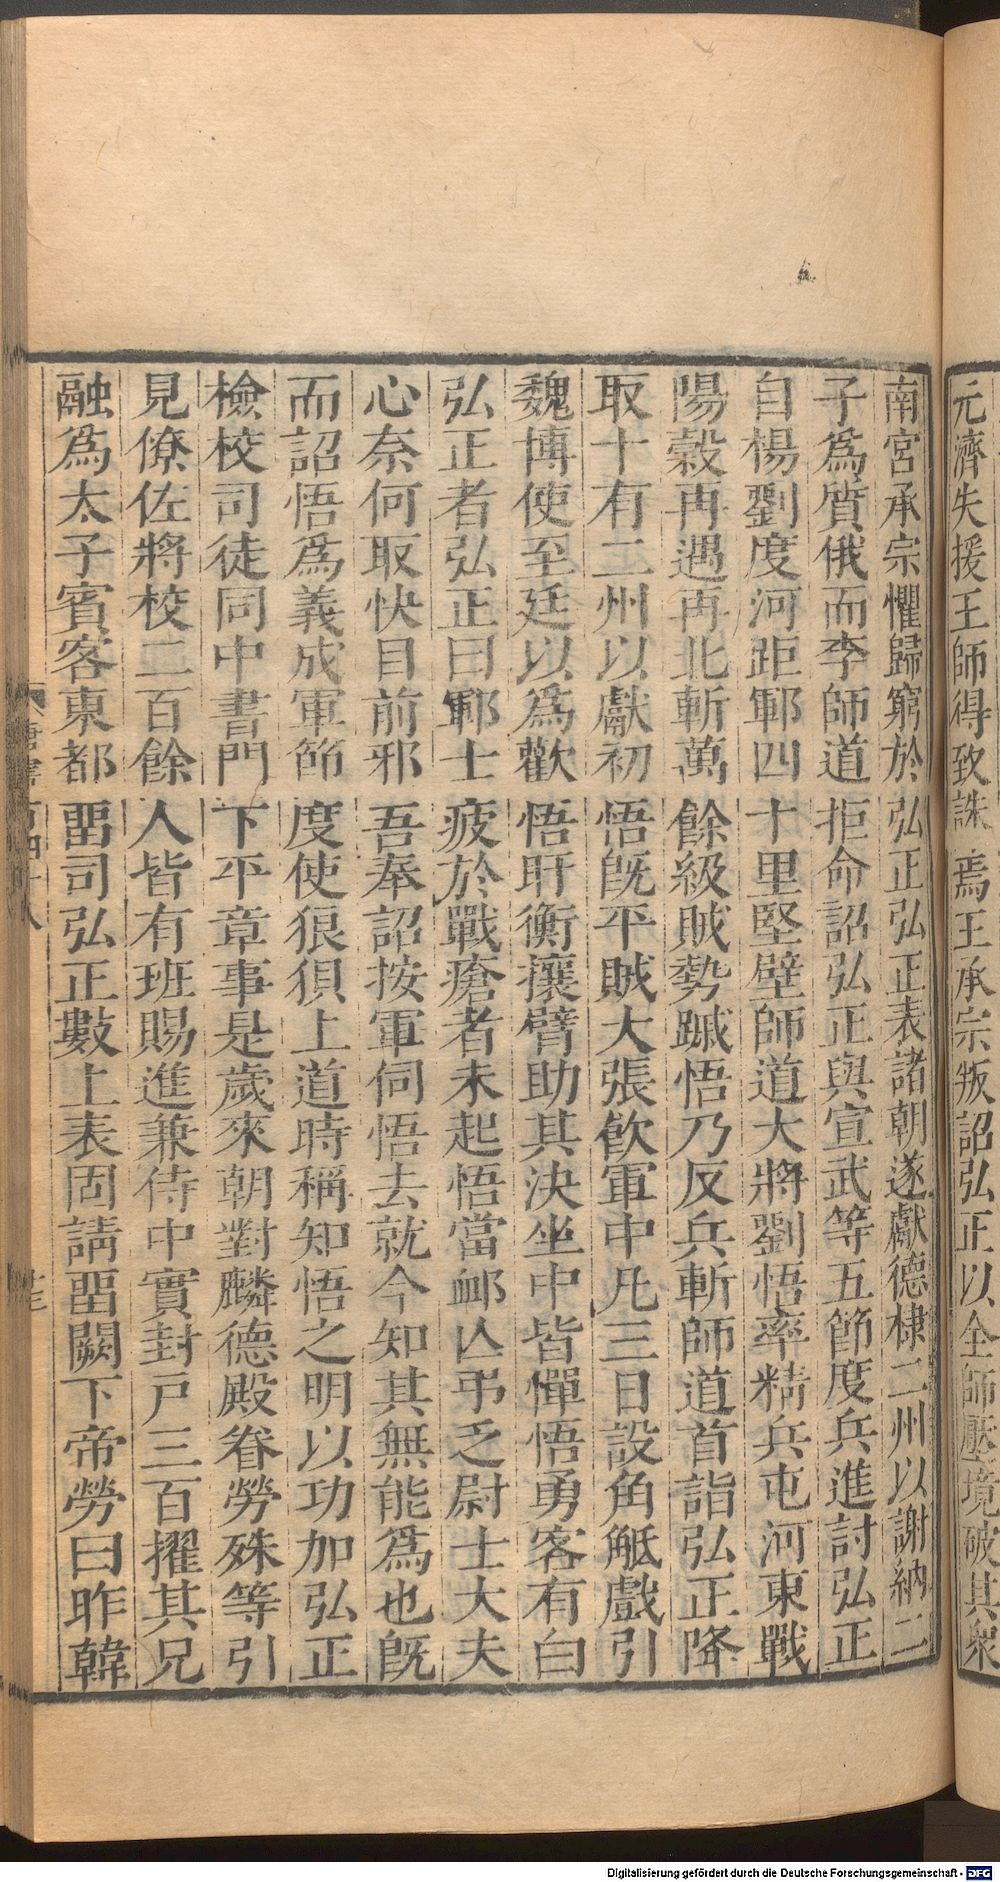 元濟失援王師得致誅焉王承宗叛詔弘正以全師壓境破其衆
南宮承宗懼歸窮於弘正弘正表諸朝遂獻德棣二州以謝納二
子爲質俄而李師道拒命詔弘正與宣武等五節度兵進討弘正
自楊劉度河距鄆四十里堅壁師道大將劉悟率精兵屯河東戰
陽穀再遇再北斬萬餘級賊勢蹙悟乃反兵斬師道首詣弘正降
取十有二州以獻初悟旣平賊大張飲軍中凡三日設角觝戲引
魏博使至廷以爲歡悟盱衡攘臂助其決坐中皆憚悟勇客有白
弘正者弘正曰鄆士疲於戰瘡者未起悟當卹亾弔乏尉士大夫
心奈何取快目前邪吾奉詔按軍伺悟去就今知其無能爲也旣
而詔悟爲義成軍節度使狼狽上道時稱知悟之明以功加弘正
檢校司徒同中書門下平章事是歲來朝對麟德殿眷勞殊等引
見僚佐將校二百餘人皆有班賜進兼侍中實封戸三百擢其兄
融爲太子賓客東都畱司弘正數上表固請畱闕下帝勞曰昨韓
唐書百四十八
Digitalisierung gefördert durch die Deutsche Forschungsgemeinschaft - DFG